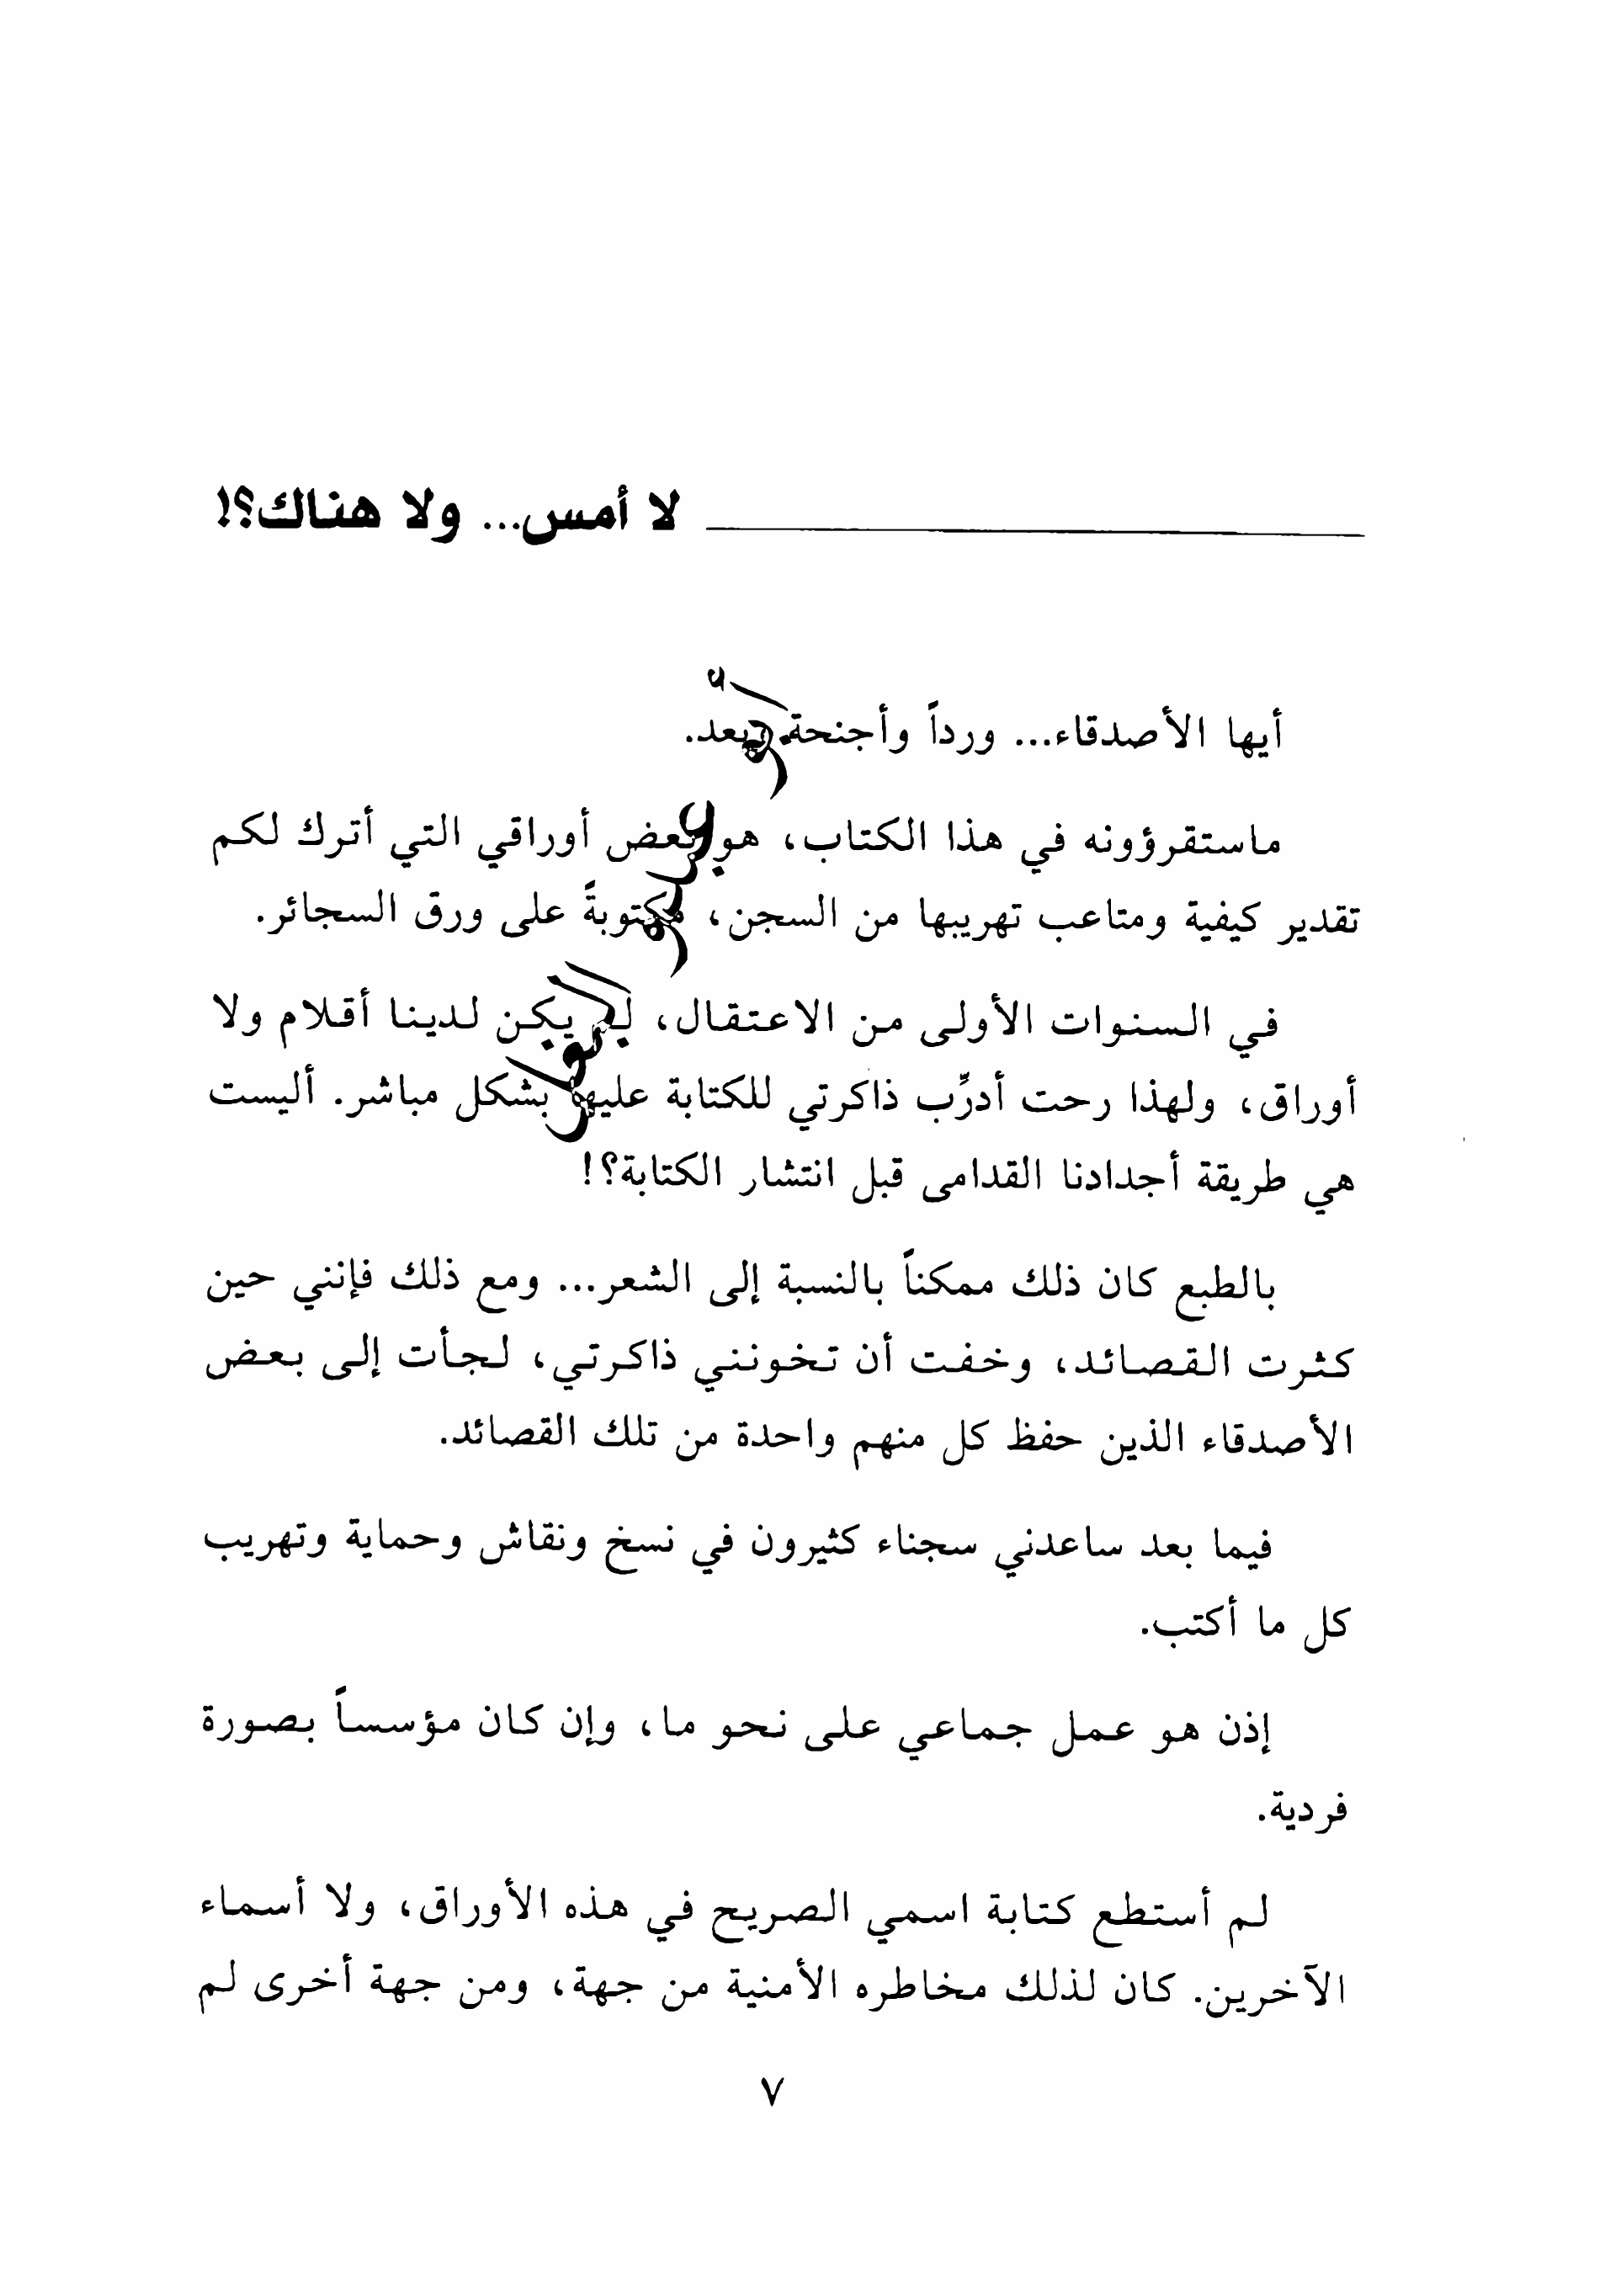 لا أمس... ولا هناك؟!
أيها الأصدقاء... ورداً وأجنحة وبعد.
ماستقرؤونه في هذا الكتاب، هو بعض أوراقي التي أترك لكم
تقدير كيفية ومتاعب تهريبها من السجن، مكتوبةً على ورق السجائر.
في السنوات الأولى من الاعتقال، لم يكن لدينا أقلام ولا
أوراق، ولهذا رحت أدرِّب ذاكرتي للكتابة عليها بشكل مباشر. أليست
هي طريقة أجدادنا القدامى قبل انتشار الكتابة؟!
بالطبع كان ذلك ممكناً بالنسبة إلى الشعر... ومع ذلك فإنني حين
كثرت القصائد، وخفت أن تخونني ذاكرتي، لجأت إلى بعض
الأصدقاء الذين حفظ كل منهم واحدة من تلك القصائد.
فيما بعد ساعدني سجناء كثيرون في نسخ ونقاش وحماية وتهريب
كل ما أكتب.
إذن هو عمل جماعي على نحو ما، وإن كان مؤسساً بصورة
فردية.
لم أستطع كتابة اسمي الصريح في هذه الأوراق، ولا أسماء
الآخرين. كان لذلك مخاطره الأمنية من جهة، ومن جهة أخرى لم
٧